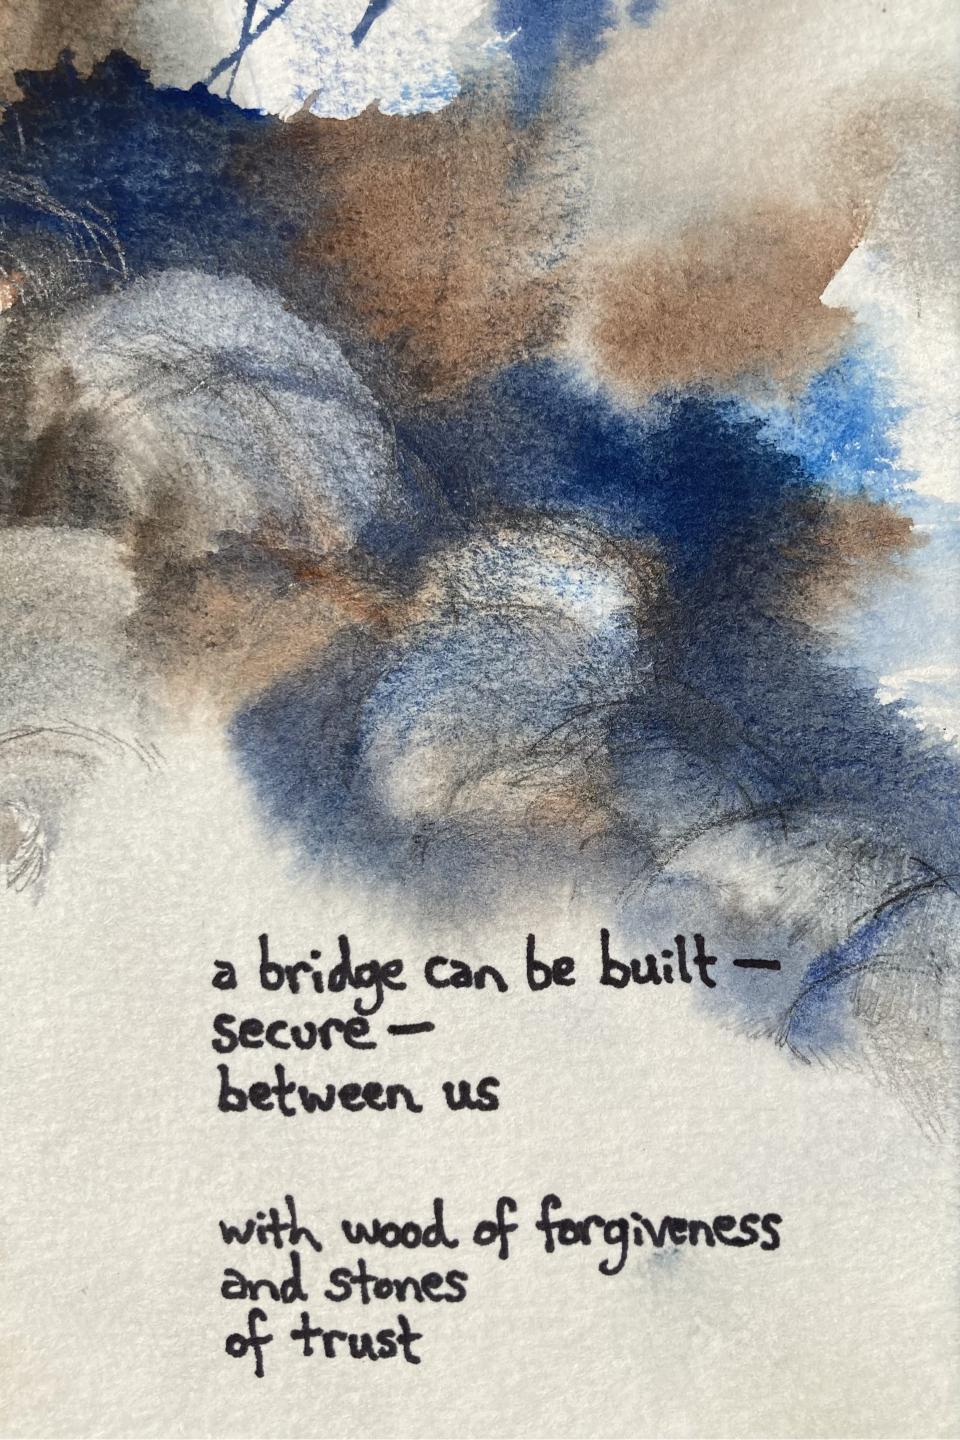 a bridge can be built —
secure —
between us
with wood of forgiveness
and stones
of trust